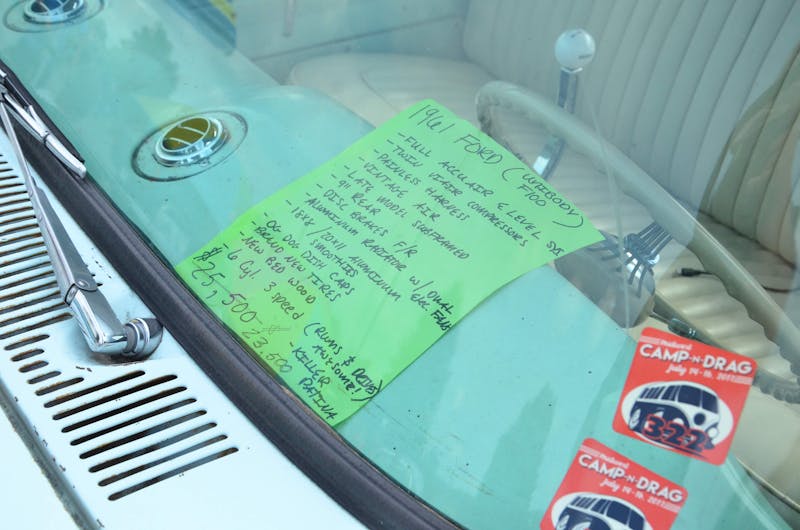 1961 FORD (UNIBODY) F100
- FULL ACCUAIR E LEVEL SYS
- TWIN VIAIR COMPRESSORS
- PAINLESS HARNESS
- VINTAGE AIR
- LATE MODEL SUBFRAMED
- 9" REAR
- DISC BRAKES F/R
- ALUMINIUM RADIATOR W/ DUAL ELEC. FANS
ALUMINIUM
SMOOTHIES
- OG DOG DISH CAPS
- BRAND NEW TIRES
- NEW BED WOOD
- 6 Cyl. 3 speed (RUNS & DRIVES AWESOME!)
- KILLER PATINA
$25,500
23,500
CAMP-N-DRAG
July 14-16, 2017
322
CAMP-N-DRAG
July 14-16, 2017